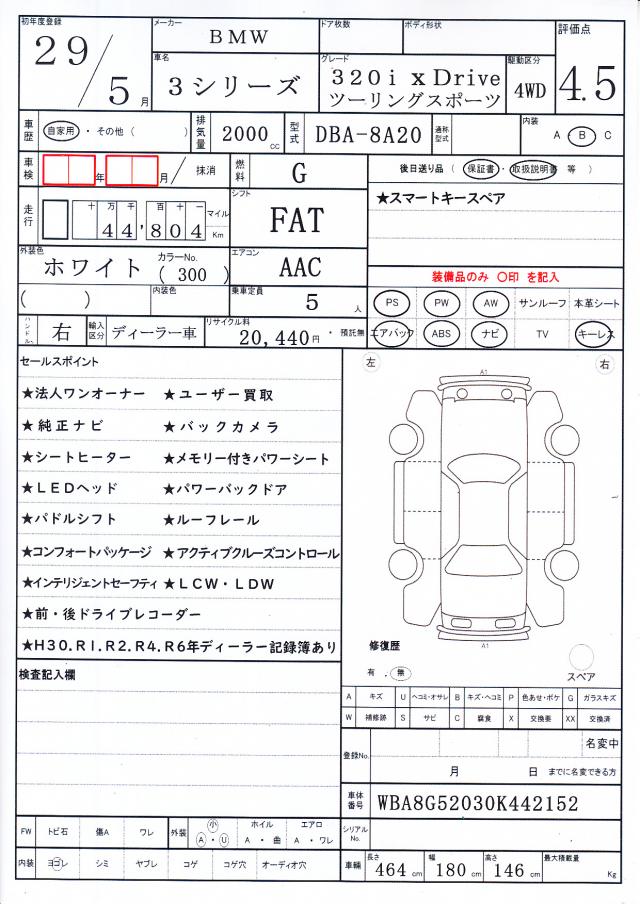 初年度登録 メーカー ドア枚数 ボディ形状 評価点
29/5月 BMW
車名 グレード 駆動区分
3シリーズ 320i xDrive 4WD 4.5
ツーリングスポーツ
車歴 自家用・その他( ) 排気量 2000cc 型式 DBA-8A20 通称型式 内装 A・B C
車検 年 月/ 抹消 燃料 G 後日送り品(保証書・取扱説明書 等)
走行 十万千百十一 マイル シフト ★スマートキースペア
44,804 Km FAT
外装色 カラーNo. エアコン
ホワイト (300) AAC 装備品のみ 〇印 を記入
( ) 内装色 乗車定員 5人 PS PW AW サンルーフ 本革シート
ハンドル 右 輸入区分 ディーラー車 リサイクル料 20,440円・預託無 エアバッグ ABS ナビ TV キーレス
セールスポイント 左 右
A1
★法人ワンオーナー ★ユーザー買取
★純正ナビ ★バックカメラ
★シートヒーター ★メモリー付きパワーシート
★LEDヘッド ★パワーバックドア
★パドルシフト ★ルーフレール
★コンフォートパッケージ ★アクティブクルーズコントロール
★インテリジェントセーフティ ★LCW・LDW
★前・後ドライブレコーダー
★H30.R1.R2.R4.R6年ディーラー記録簿あり
A1
修復歴
有.無 スペア
検査記入欄
A キズ U ヘコミ・オサレ B キズ・ヘコミ P 色あせ・ボケ G ガラスキズ
W 補修跡 S サビ C 腐食 X 交換要 XX 交換済
登録No. 名変中
月 日 までに名変できる方
車体番号 WBA8G52030K442152
FW トビ石 傷A ワレ 外装 小 A・U ホイル A・曲 エアロ A・ワレ シリアルNo.
内装 ヨゴレ シミ ヤブレ コゲ コゲ穴 オーディオ穴 車輛 長さ 464cm 幅 180cm 高さ 146cm 最大積載量 Kg